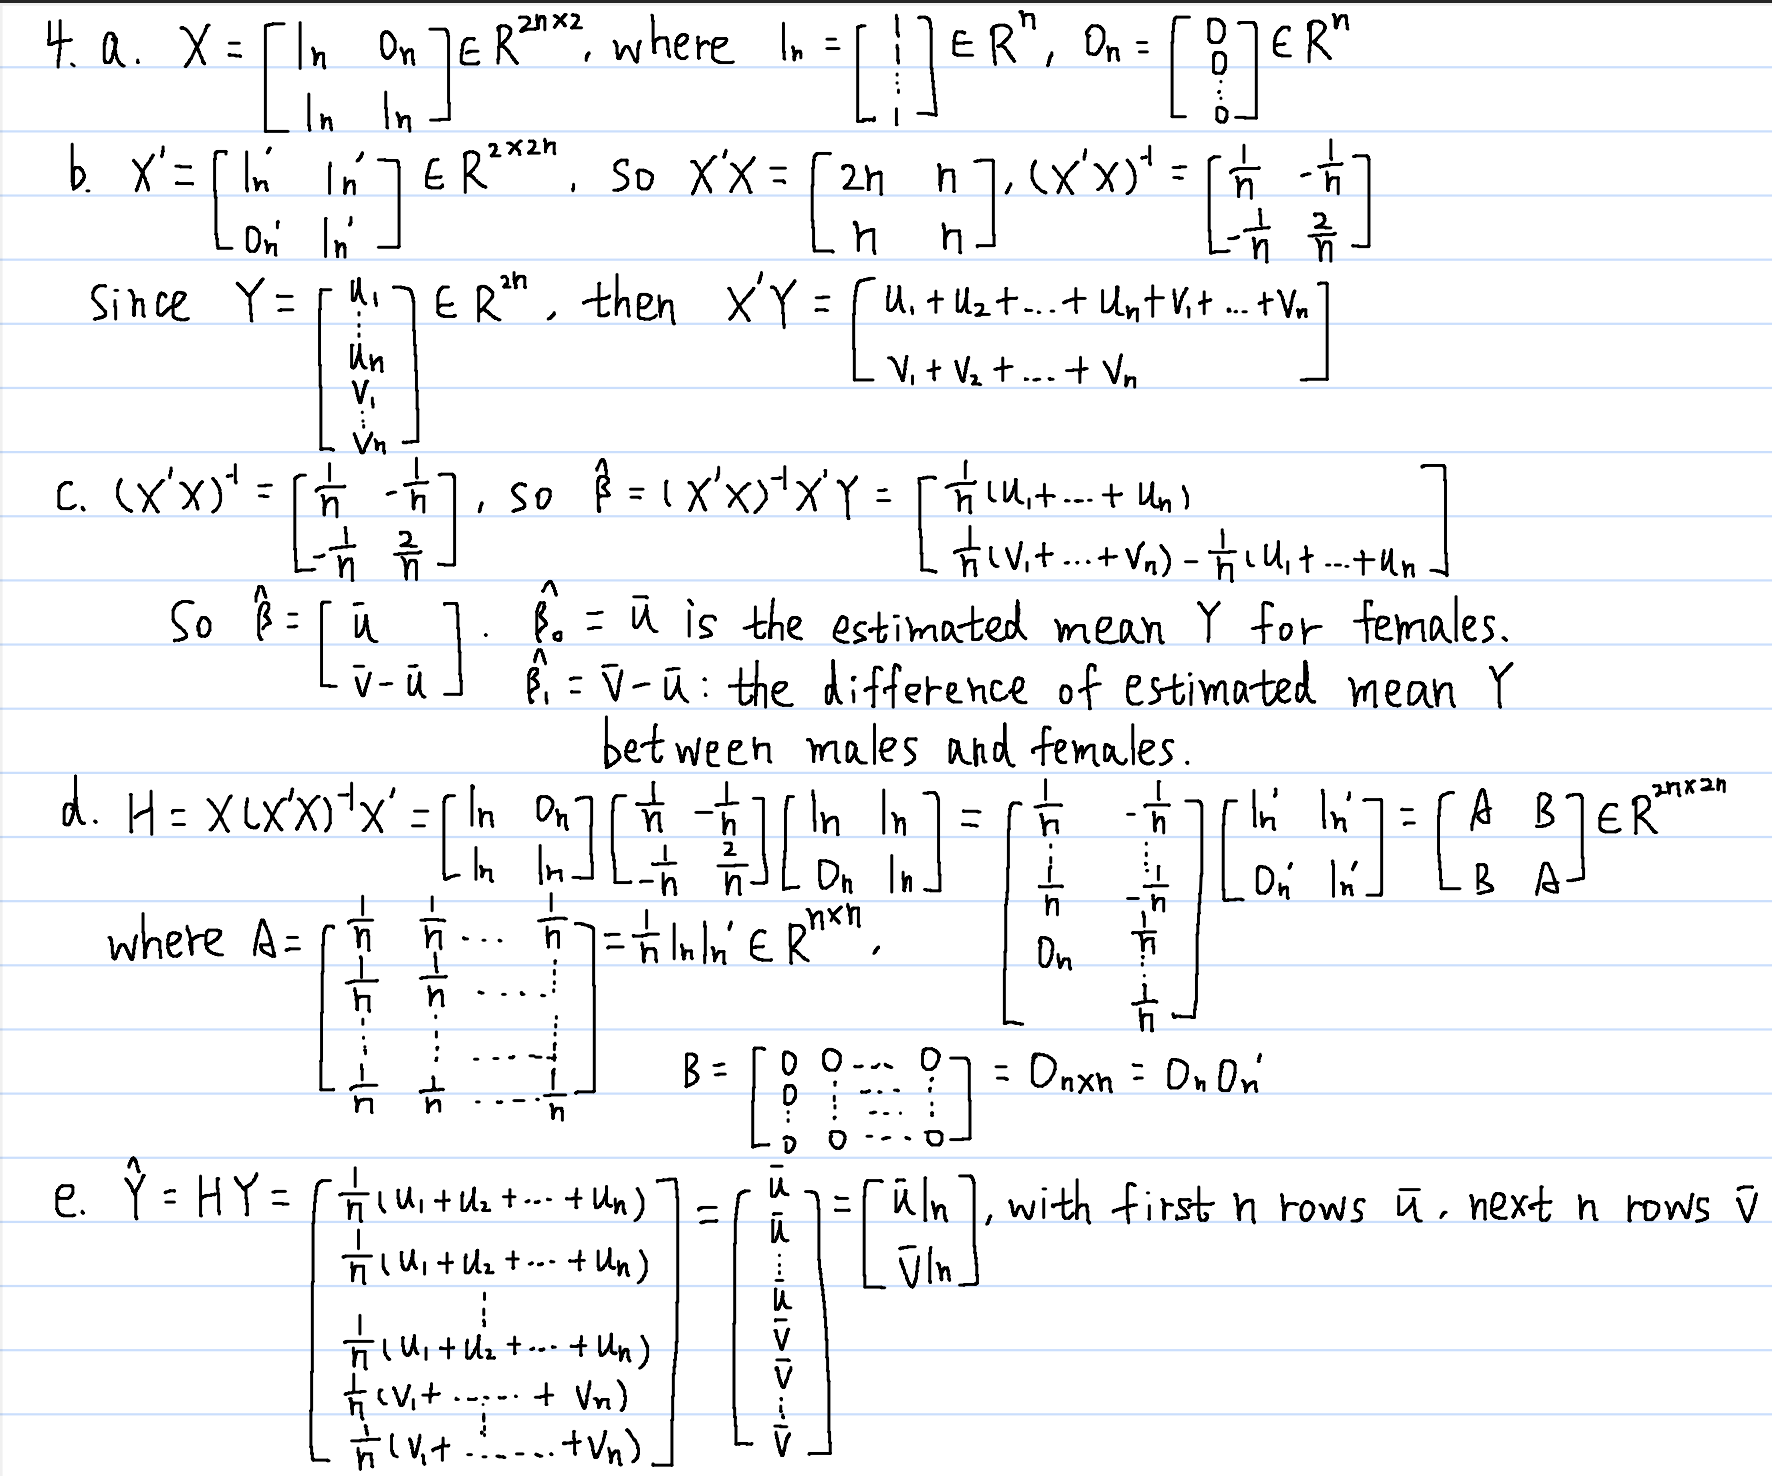 4. a. X = [1n 0n; 1n 1n] ∈ R^{2n×2}, where 1n = [1; 1; ⋮; 1] ∈ R^n, 0n = [0; 0; ⋮; 0] ∈ R^n
b. X' = [1n' 1n'; 0n' 1n'] ∈ R^{2×2n}, so X'X = [2n n; n n], (X'X)^{-1} = [1/n -1/n; -1/n 2/n]
Since Y = [u1; ⋮; un; v1; ⋮; vn] ∈ R^{2n}, then X'Y = [u1+u2+...+un+v1+...+vn; v1+v2+...+vn]
c. (X'X)^{-1} = [1/n -1/n; -1/n 2/n], so β̂ = (X'X)^{-1}X'Y = [1/n(u1+...+un); 1/n(v1+...+vn) - 1/n(u1+...+un]
So β̂ = [ū; v̄-ū]. β̂0 = ū is the estimated mean Y for females.
β̂1 = v̄-ū: the difference of estimated mean Y
between males and females.
d. H = X(X'X)^{-1}X' = [1n 0n; 1n 1n][1/n -1/n; -1/n 2/n][1n 1n; 0n 1n] = [1/n -1/n; ⋮ ⋮; 1/n -1/n; 0n 1/n; ⋮; 1/n][1n' 1n'; 0n' 1n'] = [A B; B A] ∈ R^{2n×2n}
where A = [1/n 1/n ... 1/n; 1/n 1/n ....; ⋮ ⋮ ....; 1/n 1/n .... 1/n] = 1/n 1n1n' ∈ R^{n×n},
B = [0 0 ... 0; 0 ⋮ ... ⋮; ⋮ ...; 0 0 ... 0] = 0n×n = 0n0n'
e. Ŷ = HY = [1/n(u1+u2+...+un); 1/n(u1+u2+...+un); ⋮; 1/n(u1+u2+...+un); 1/n(v1+......+vn); ⋮; 1/n(v1+.......+vn)] = [ū; ū; ⋮; ū; v̄; v̄; ⋮; v̄] = [ū1n; v̄1n], with first n rows ū, next n rows v̄